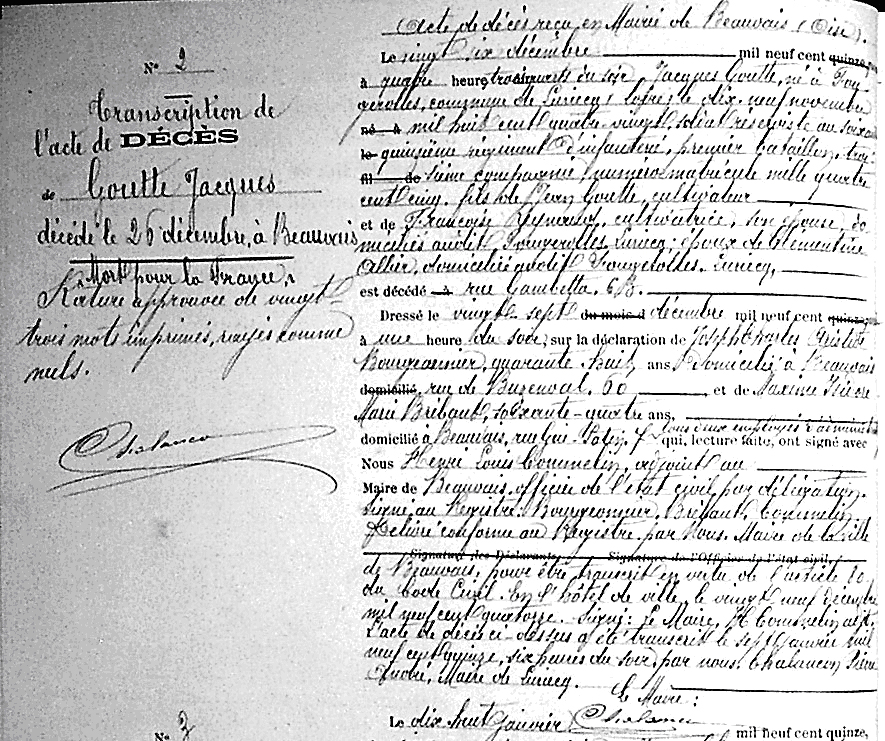 N° 2
Transcription de
l'acte de DÉCÈS
de Goutte Jacques
décédé le 26 décembre, à Beauvais
"Mort pour la France"
Rature approuvée de vingt-
trois mots imprimés, rayés comme
nuls.
Chalancon
N° 3
Acte de décès reçu en Mairie de Beauvais (Oise).
Le vingt six décembre mil neuf cent quinze
à quatre heures trois quarts du soir Jacques Goutte, né à Fou
gerolles, commune de Luriecq (Loire) le dix-neuf novembre
né à mil huit cent quatre-vingt, soldat réserviste au soixante
le quinzième régiment d'infanterie, premier bataillon, troi-
fil de sième compagnie, numéro matricule mille quatre
cent cinq, fils de Jean Goutte, cultivateur
et de Françoise cultivatrice, son épouse, do
miciliés audit Fougerolles, Luriecq; époux de Clémentine
Allier, domiciliée audit Fougerolles, Luriecq,
est décédé à rue Gambetta, 6B.
Dressé le vingt sept du mois d décembre mil neuf cent quinze
à une heure du soir, sur la déclaration de Joseph Charles Aristide
Bourgeonnier, quarante huit ans domicilié à Beauvais
domicilié, rue de Buzenval, 60 et de Maxime Isidore
Marie Bribaut, soixante-quatre ans,
domicilié à Beauvais, rue Gui-Patin, 7 tous deux employés d'administ
qui, lecture faite, ont signé avec
Nous Henri Louis Commelin, adjoint au
Maire de Beauvais, officier de l'état civil par délégation.
Signé au Registre: Bourgeonnier, Bribaut, Commelin.
Délivré conforme au Registre par Nous, Maire de la ville
Signature des Déclarants, Signature de l'Officier de l'état civil,
de Beauvais, pour être transcrit en vertu de l'article 80
du Code Civil. En l'hôtel de ville, le vingt neuf décembre
mil neuf cent quatorze. Signé: Le Maire, H Commelin adjt.
L'acte de décès ci-dessus a été transcrit le sept janvier mil
neuf cent quinze, six heures du soir, par nous, Chalancon Pierre
André, Maire de Luriecq.
Le Maire:
Chalancon
Le dix huit janvier mil neuf cent quinze,